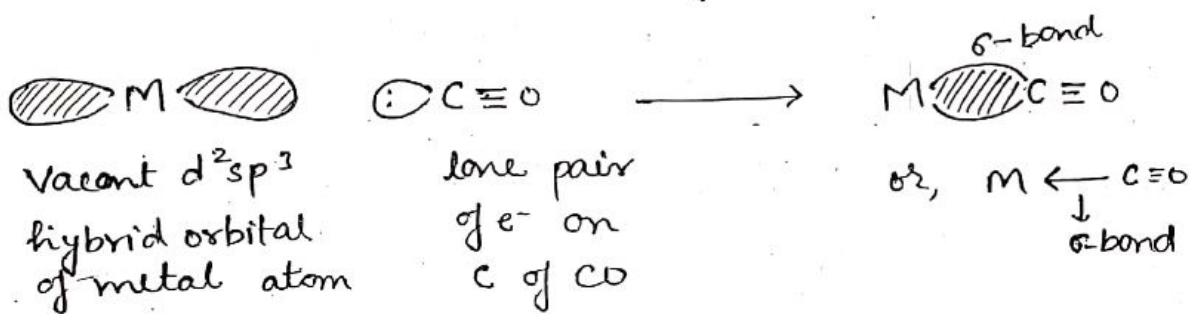 σ-bond
M :C≡O ⟶ M C≡O
Vacant d²sp³
hybrid orbital
of metal atom
lone pair
of e⁻ on
C of CO
or, M ⟵ C≡O
↓
σ-bond